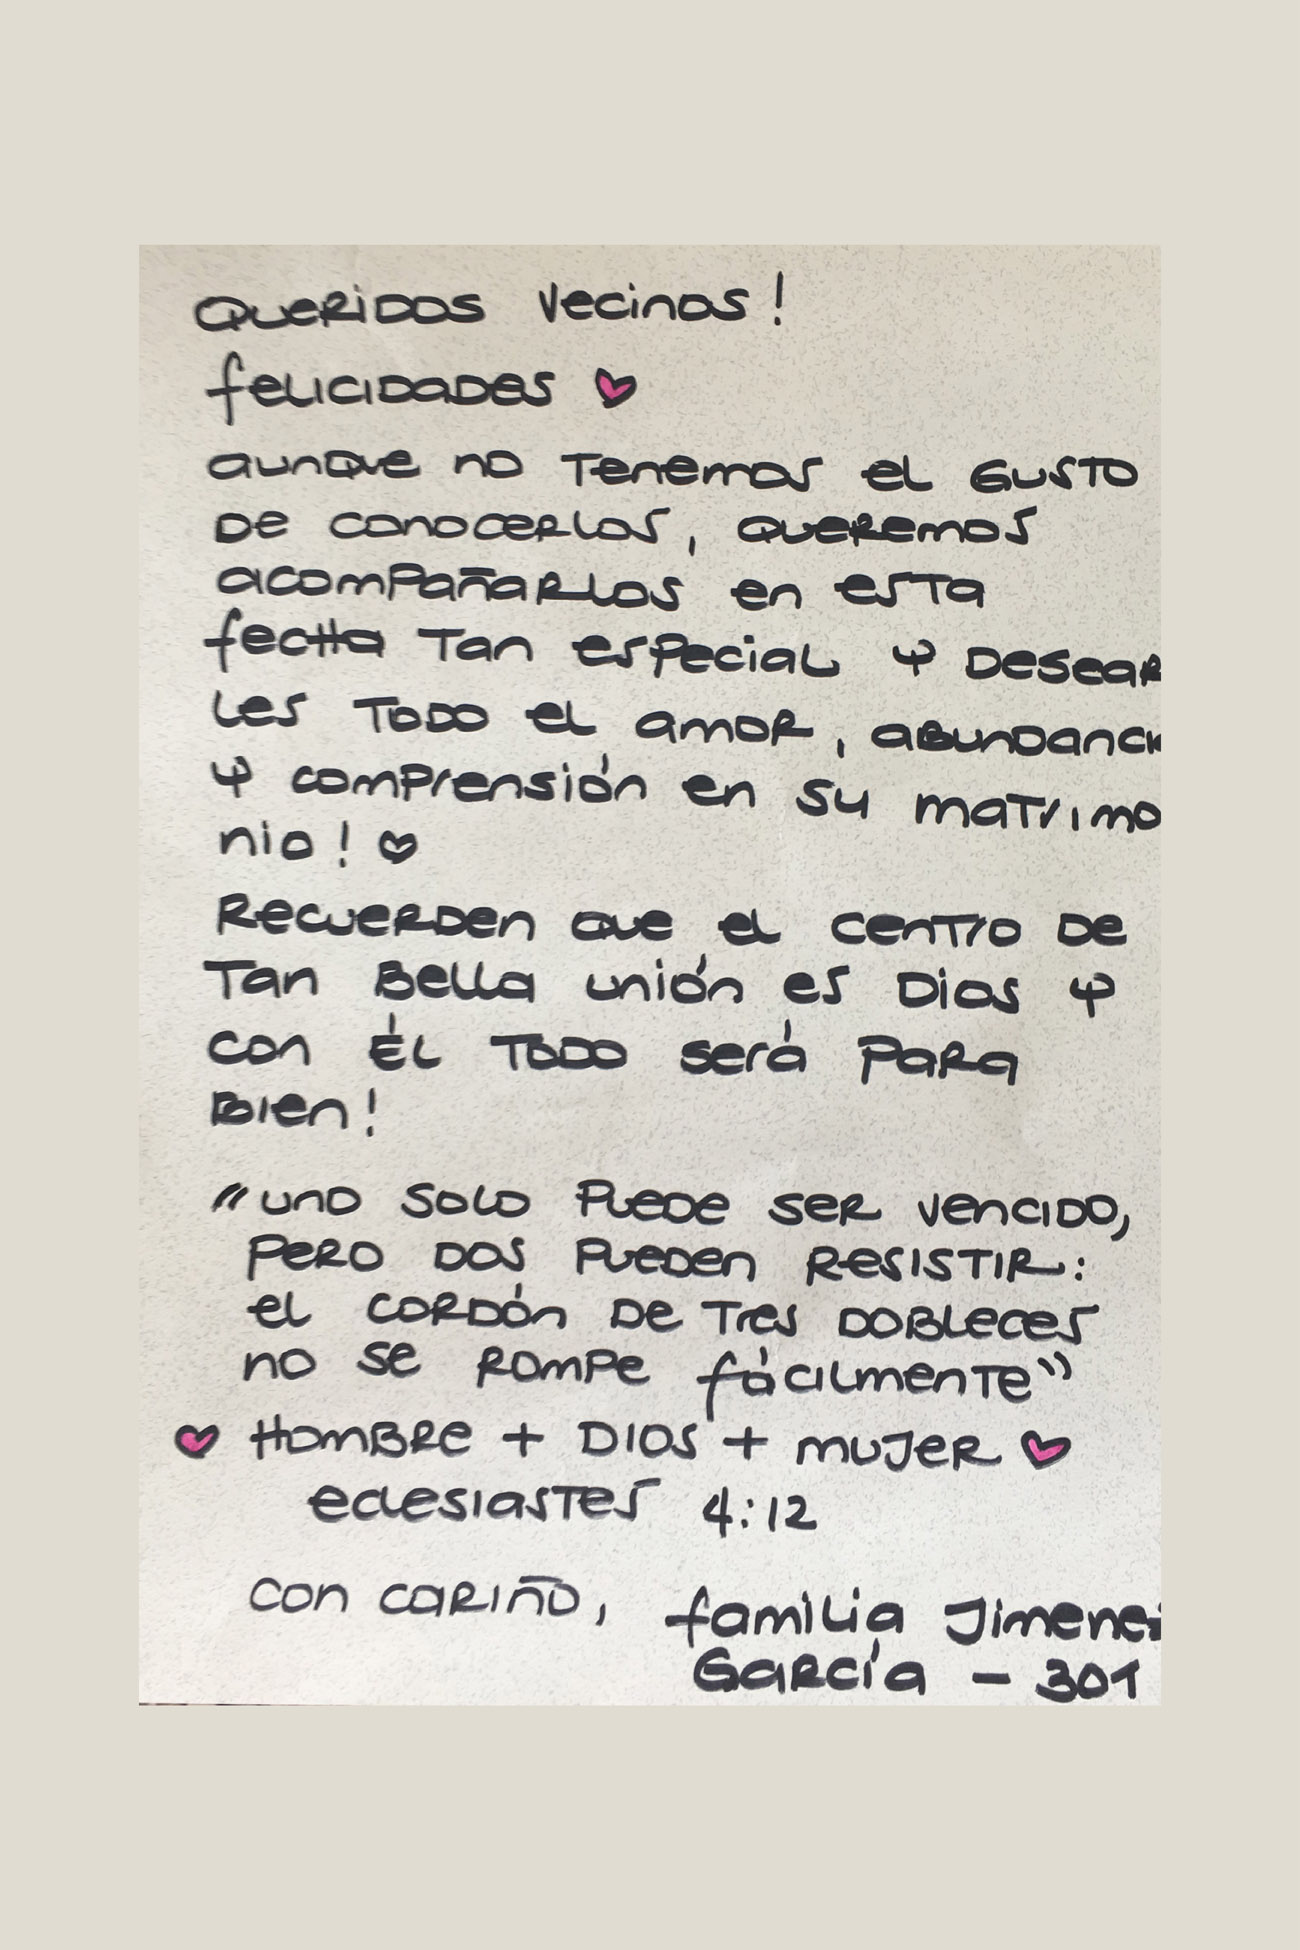 Queridos Vecinos!
felicidades
aunque no Tenemos el Gusto
De conocerlos, queremos
acompañarlos en esta
fecha Tan especial y Desear
les Todo el amor, abundanci
y comprensión en su matrimo
nio!
Recuerden que el centro De
Tan Bella unión es Dios y
con Él Todo será Para
Bien!
"uno solo Puede ser vencido,
Pero Dos Pueden Resistir:
el cordón De Tres Dobleces
no se Rompe fácilmente"
Hombre + Dios + mujer
eclesiastes 4:12
con cariño, familia Jimenez
García - 301